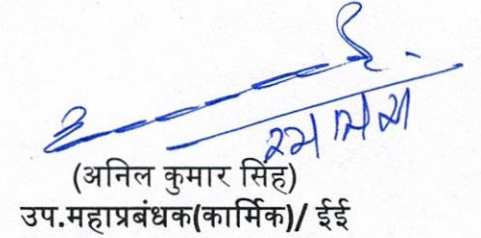 (अनिल कुमार सिंह)
उप.महाप्रबंधक(कार्मिक)/ ईई